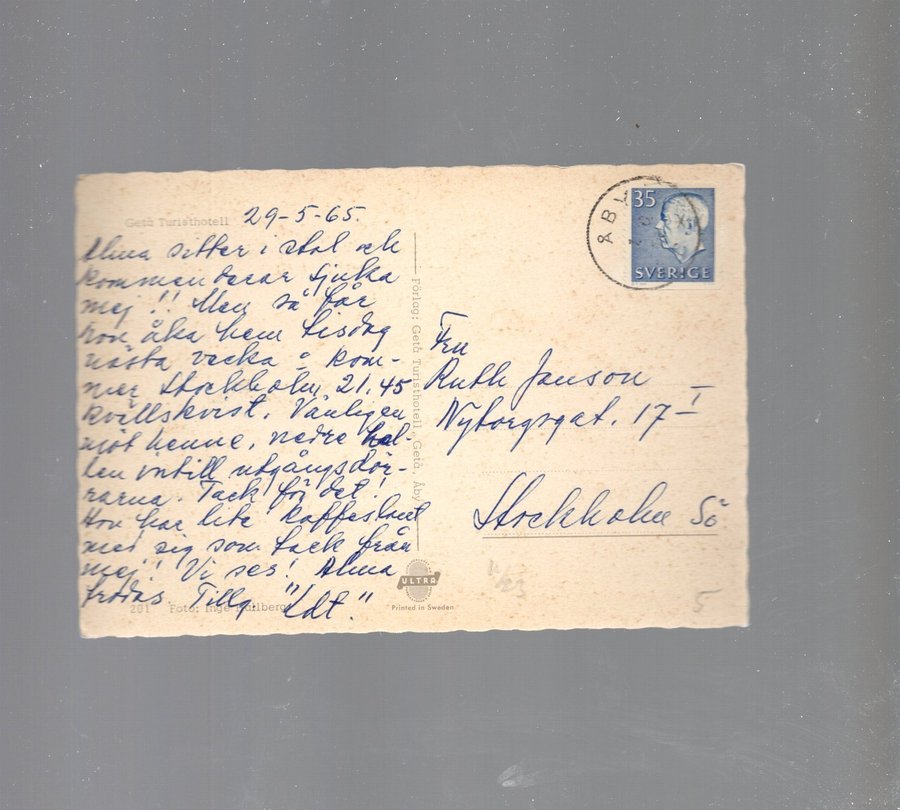 Getå Turisthotell 29-5-65.
Alma sitter i stol och
kommenderar sjuka
mej!! Men så får
hon åka hem tisdag
nästa vecka o kom-
mer Stockholm 21.45
kvällskvist. Vänligen
möt henne, nedre hal-
len intill utgångsdör-
rarna. Tack för det!
Hon har lite kaffeslant
med sig som tack från
mej! Vi ses! Alma
Tillg "Ldt."
201 Foto: Inge
Förlag: Getå Turisthotell, Getå, Åby
ULTRA
Printed in Sweden
ÅBY
35
SVERIGE
Fru
Ruth Janson
Nytorgsgat. 17 I
Stockholm Sö
5